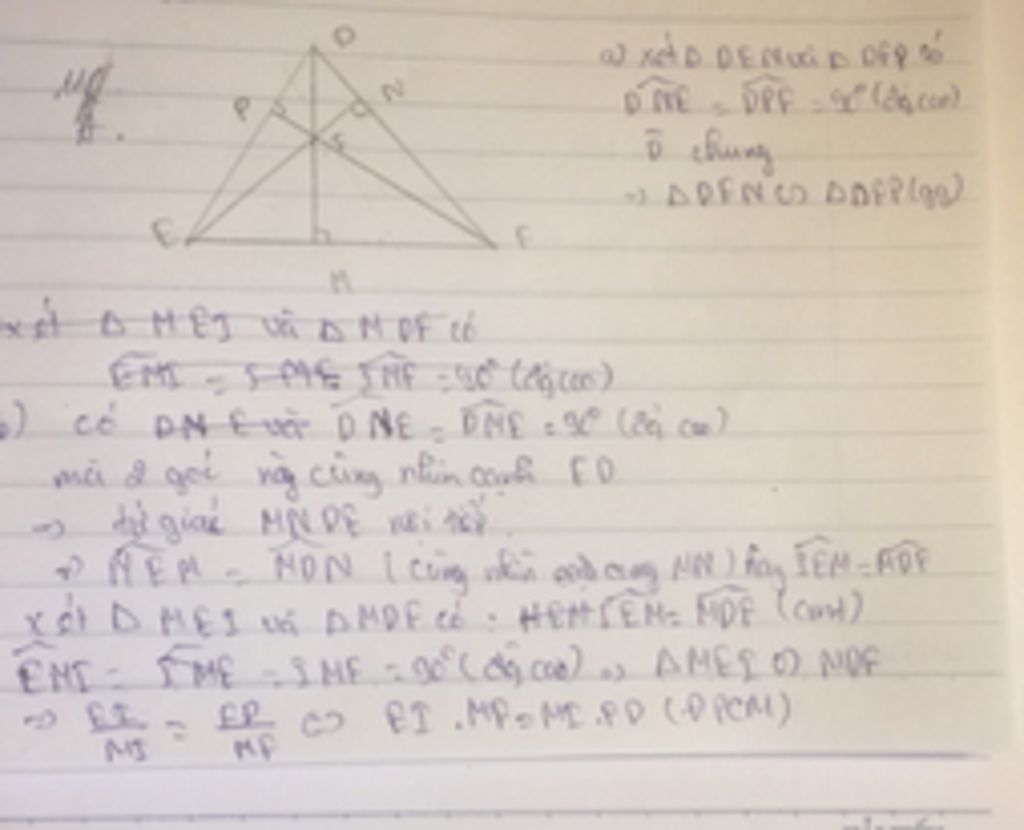 D
P
N
I
E
F
M
a) xét Δ DEN và Δ DFP có
DNE = DPF = 90° (đg cao)
D chung
=> Δ DEN ∽ Δ DFP (gg)
xét Δ MEI và Δ MDF có
EMI = IMF = 90° (đg cao)
b) có DNE = DME = 90° (đg cao)
mà 2 góc này cùng nhìn cạnh ED
=> tứ giác MNDE nội tiếp.
=> NEM = MDN (cùng nhìn cung MN) hay IEM = MDF
xét Δ MEI và Δ MDF có: IEM = MDF (cmt)
EMI = IME = IMF = 90° (đg cao) => Δ MEI ∽ MDF
=> EI/MI = FD/MF <=> EI . MF = MI . FD (ĐPCM)